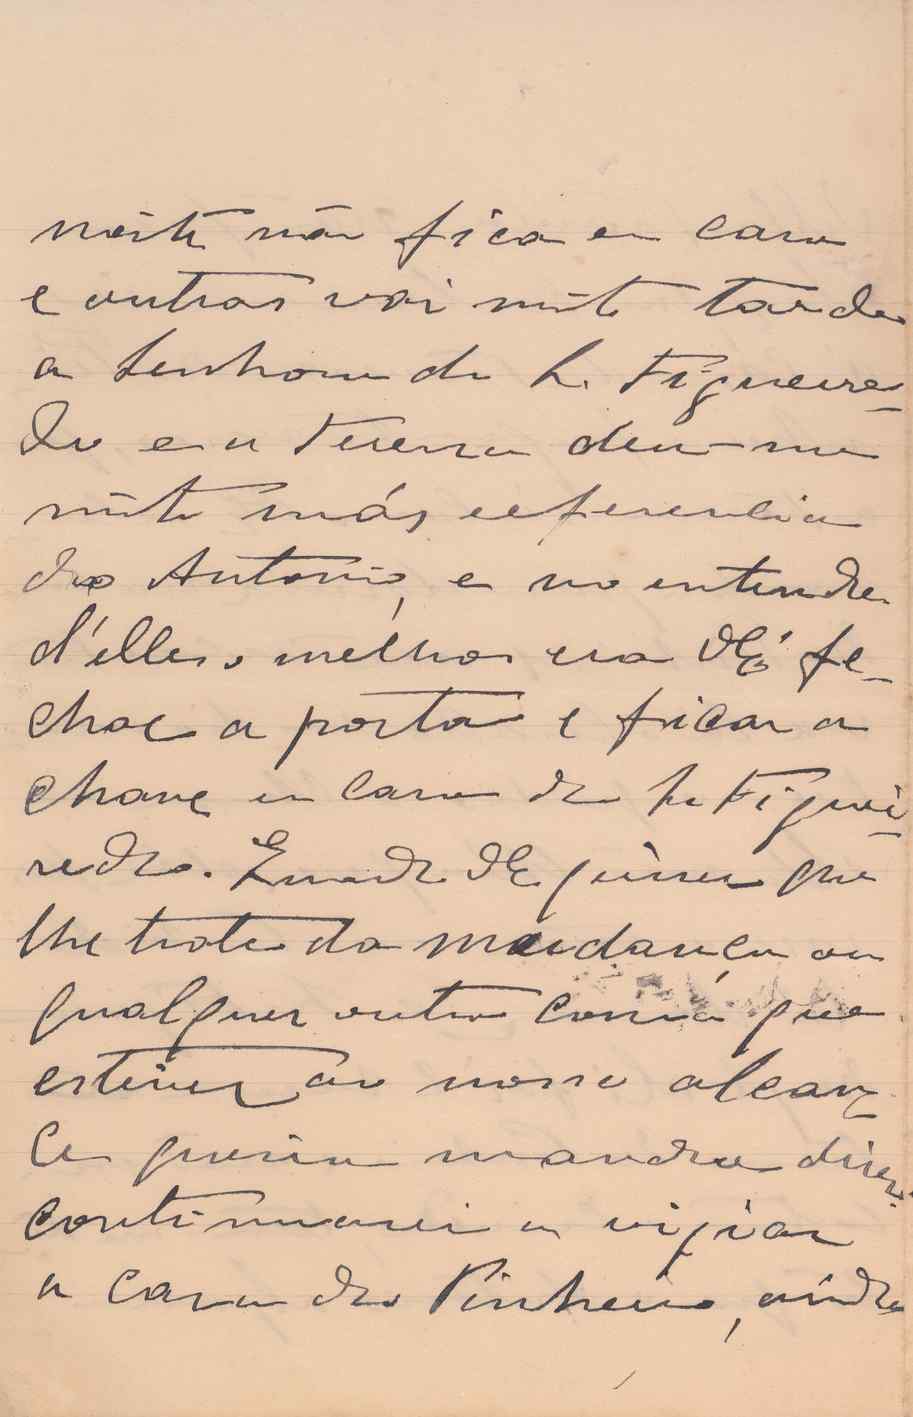 noite não fica em casa
e outras vai muito tarde
a Senhora de L. Figueire-
do e a Teresa deu-me
muito más referencia
do Antonio, e no entender
d'elles o melhor era é fe-
char a porta e ficar a
chave em casa de L. Figuei-
redo. Quando quiser que
lhe trate da mudança ou
qualquer outra cousa que
estiver ao nosso alcan-
ce queira mandar dizer.
continuarei a vigiar
a casa do Pinheiro, ainda